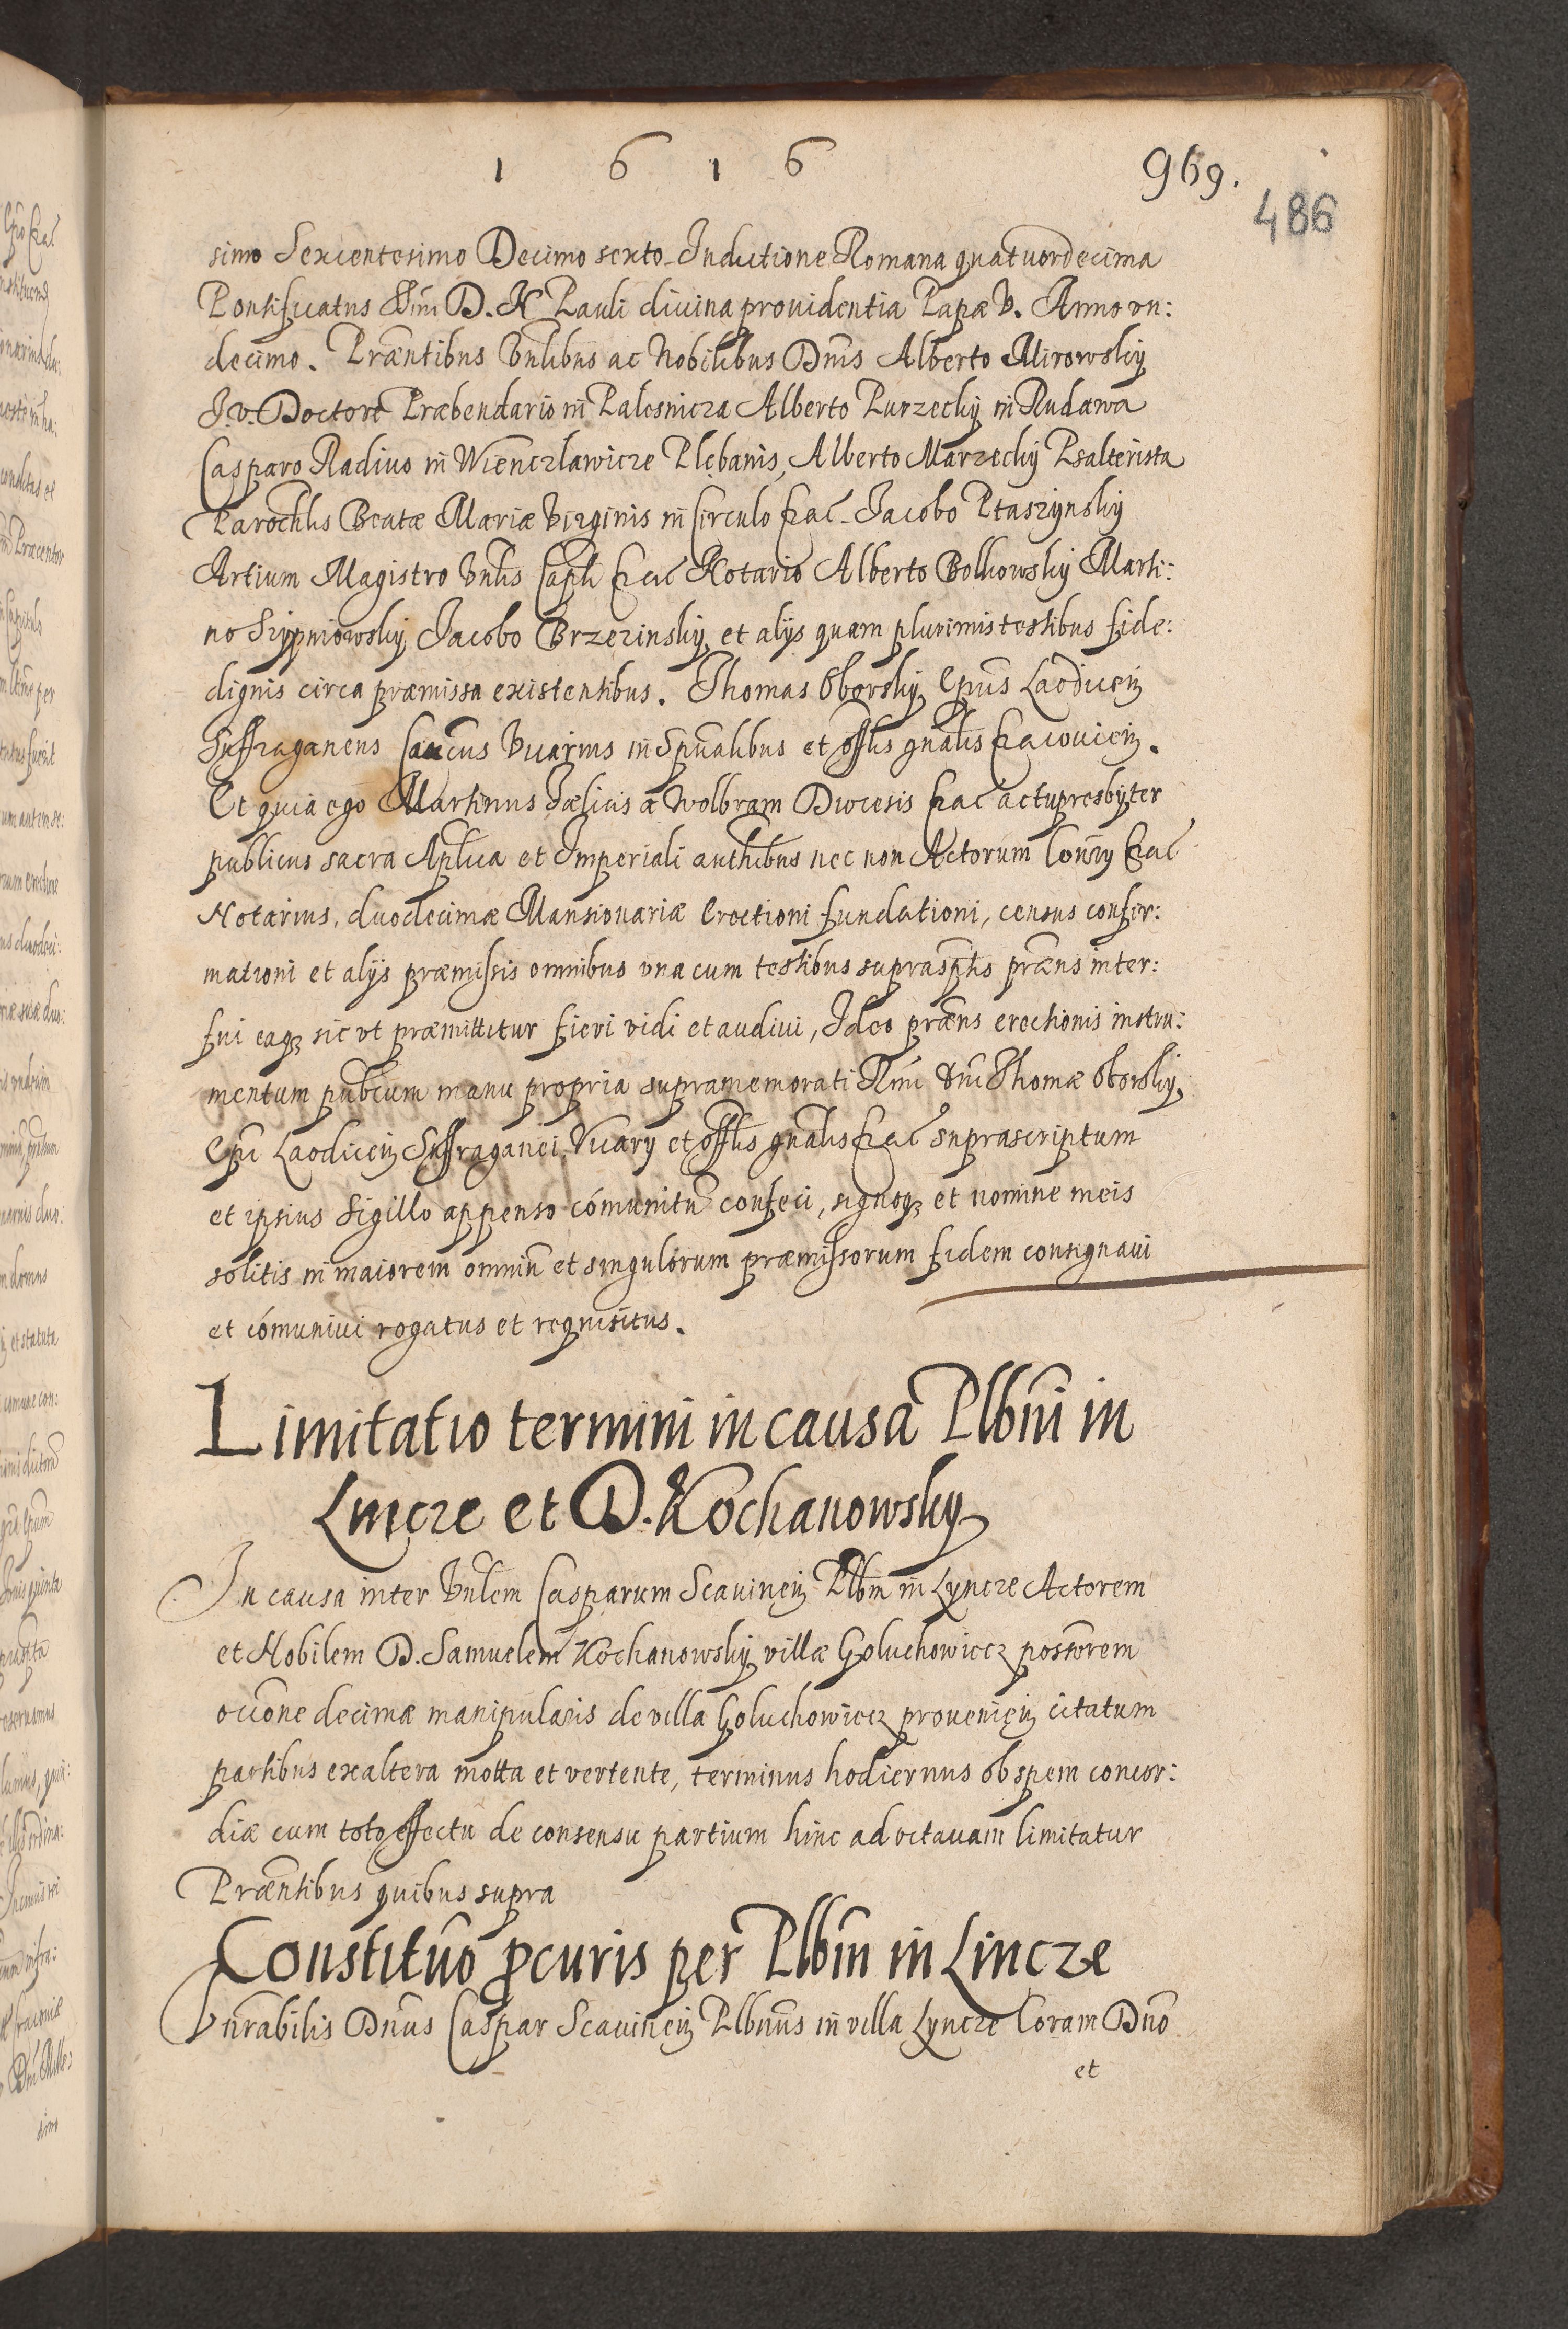 1 6 1 6
969.
486
simo Sexcentesimo Decimo sexto Indictione Romana quatuordecima
Pontificatus Ssmi D. N Pauli diuina prouidentia Papæ V. Anno vn:
decimo. Præntibus Vnlibus ac Nobilibus Dnis Alberto Mirowsky
J. v. Doctore Præbendario in Palesnicza Alberto Purzecky in Rudawa
Casparo Radivo in Wienczlawicze Plebanis, Alberto Marzecky Psalterista
Parochlis Beatæ Mariæ Virginis in Circulo Crac. Jacobo Ptaszynsky
Artium Magistro Vnlis Capli Crac Notario Alberto Bolkowsky Marti:
no Szypniowsky Jacobo Brzezinsky et alijs quam plurimis testibus fide:
dignis circa præmissa existentibus. Thomas Oborsky Epus Laodiceñ
Suffraganeus Canĉus Vicarius in Spualibus et offlis gnalis Cracouieñ.
Et quia ego Martinus Fælicis a Wolbram Diocesis Crac actu presbyter
publicus sacra Aplica et Imperiali authibus nec non Actorum Consrÿ Crac
Notarius, duodecimæ Mansionariæ Erectioni fundationi, census confir:
mationi et alijs præmissis omnibus vna cum testibus suprasptis præns inter:
fui eaq sic vt præmittitur fieri vidi et audiui, Ideo præns erectionis instru:
mentum publcum manu propria supramemorati Rmi dni Thomæ Oborsky
Epi Laodiceñ Suffraganei, Vicarÿ et offlis gnalis Crac suprascriptum
et ipsius Sigillo appenso cómunitũ confeci, signoq et nomine meis
solitis in maiorem omniũ et singulorum præmissorum fidem consignaui
et cómuniui rogatus et requisitus.
Limitatio termini in causa Plbni in
Lincze et D. Kochanowsky
In causa inter Vnlem Casparum Scauineñ Plbm in Lyncze Actorem
et Nobilem D. Samuelem Kochanowsky villæ Goluchowicz possorem
occone decimæ manipularis de villa Goluchowicz prouenieñ citatum
partibus ex altera motta et vertente, terminus hodiernus ob spem concor:
diæ cum toto effectu de consensu partium hinc ad octauam limitatur
Præntibus quibus supra
Constituo pcuris per Plbm in Lincze
Vnrabilis Dnus Caspar Scauineñ Plbnus in villa Lyncze Coram Dno
et